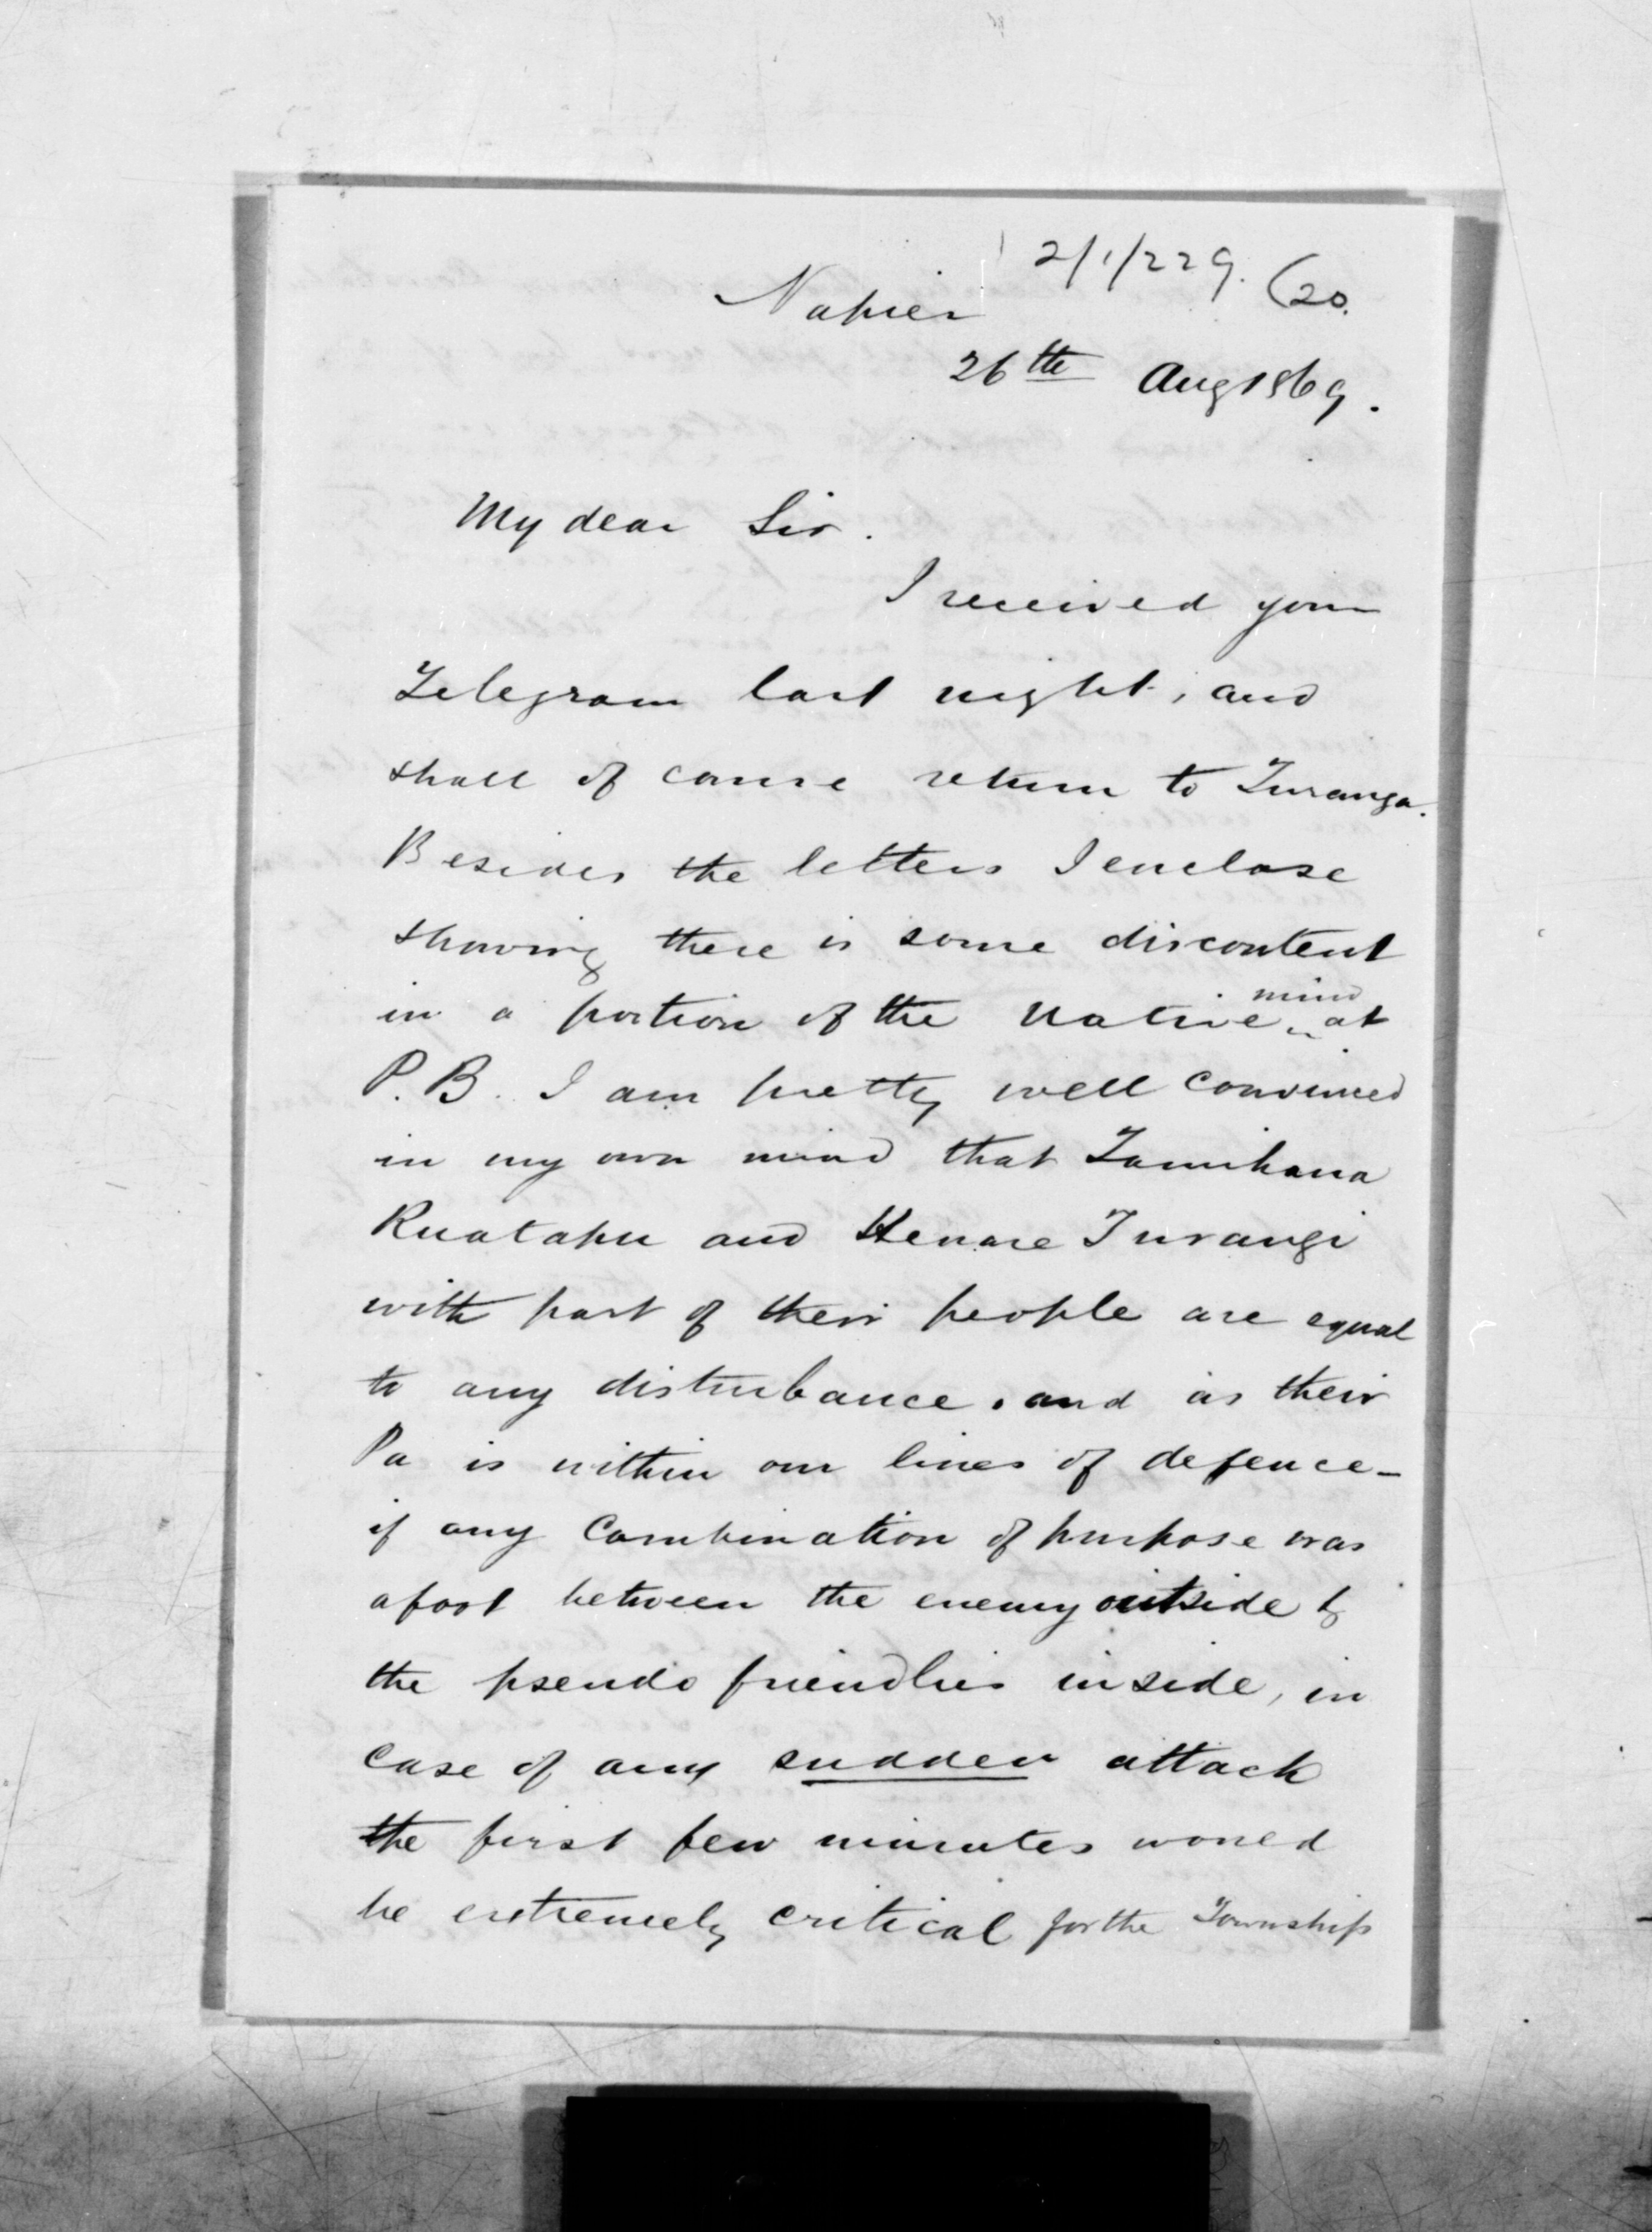 2/1/229. (20.
Napier
26th Aug 1869.
My dear Sir.
I received your
Telegram last night, and
shall of course return to Turanga.
Besides the letters I enclose
showing there is some discontent
in a portion of the Native mind at
P.B. I am pretty well convinced
in my own mind that Tamihana
Ruatapu and Henare Turangi
with part of their people are equal
to any disturbance. and as their
Pa is within our lines of defence_
if any Combination of purpose was
afoot between the enemy outside &
the pseudo friendlies inside, in
case of any sudden attack
the first few minutes would
be extremely critical for the Township